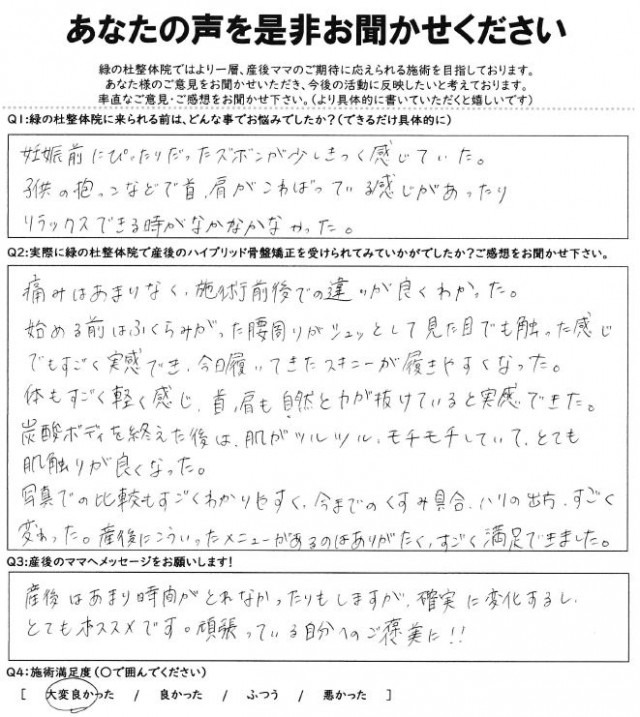 あなたの声を是非お聞かせください
緑の杜整体院ではより一層、産後ママのご期待に応えられる施術を目指しております。
あなた様のご意見をお聞かせいただき、今後の活動に反映したいと考えております。
率直なご意見・ご感想をお聞かせ下さい。(より具体的に書いていただくと嬉しいです)
Q1:緑の杜整体院に来られる前は、どんな事でお悩みでしたか?(できるだけ具体的に)
妊娠前にぴったりだったズボンが少しきつく感じていた。
子供の抱っこなどで首、肩がこわばっている感じがあったり
リラックスできる時がなかなかなかった。
Q2:実際に緑の杜整体院で産後のハイブリッド骨盤矯正を受けられてみていかがでしたか?ご感想をお聞かせ下さい。
痛みはあまりなく、施術前後での違いが良くわかった。
始める前はふくらみがった腰周りがシュッとして見た目でも触った感じ
でもすごく実感でき、今日履いてきたスキニーが履きやすくなった。
体もすごく軽く感じ、首、肩も自然と力が抜けていると実感できた。
炭酸ボディを終えた後は、肌がツルツル、モチモチしていて、とても
肌触りが良くなった。
写真での比較もすごくわかりやすく、今までのくすみ具合、ハリの出方、すごく
変わった。産後にこういったメニューがあるのはありがたく、すごく満足できました。
Q3:産後のママへメッセージをお願いします!
産後はあまり時間がとれなかったりもしますが、確実に変化するし、
とてもオススメです。頑張っている自分へのご褒美に!!
Q4:施術満足度(〇で囲んでください)
[ 大変良かった / 良かった / ふつう / 悪かった ]